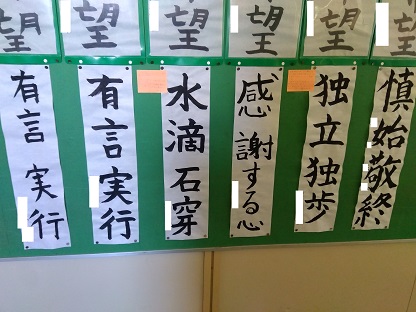 望
望
望
望
望
望
慎始敬終
独立独歩
感謝する心
水滴石穿
有言実行
有言実行